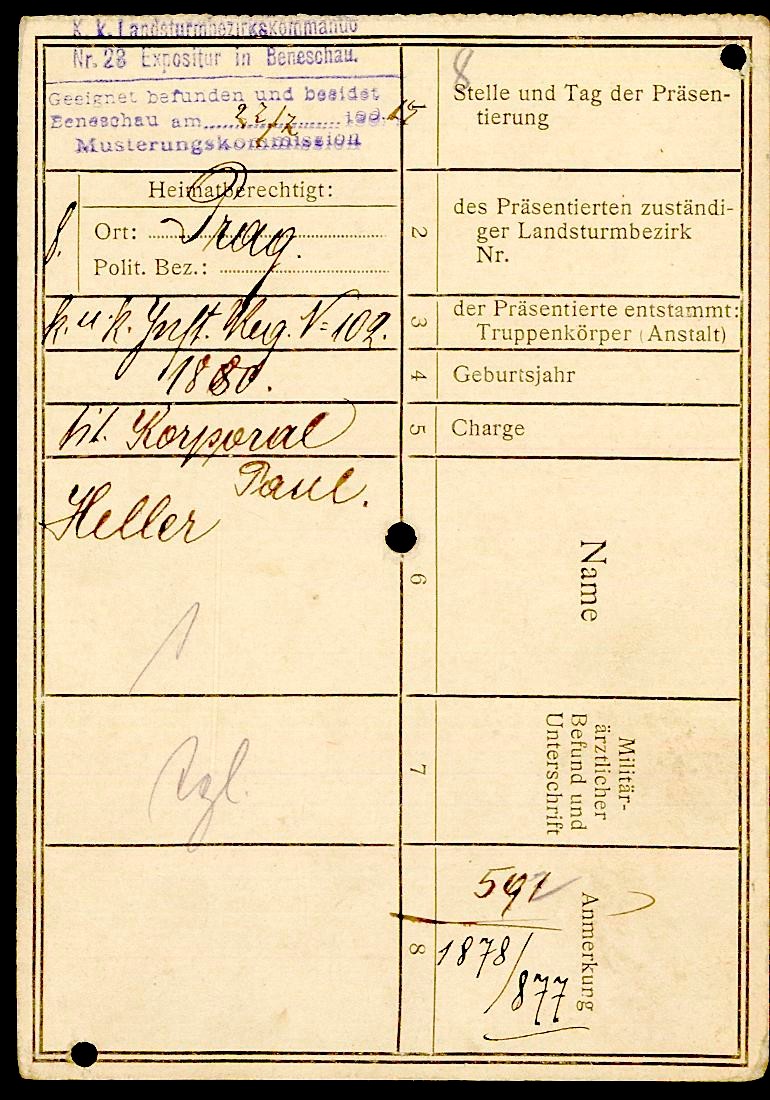 K. k. Landsturmbezirkskommando
Nr. 28 Expositur in Beneschau.
Geeignet befunden und beeidet
Beneschau am 22/12 19015
Musterungskommission
8
Stelle und Tag der Präsen-
tierung
Heimatberechtigt:
Ort: Prag.
Polit. Bez.:
2
des Präsentierten zuständi-
ger Landsturmbezirk
Nr.
k. u. k. Inft. Reg. N= 102.
3
der Präsentierte entstammt:
Truppenkörper (Anstalt)
1880.
4
Geburtsjahr
tit. Korporal
5
Charge
Paul.
Heller
6
Name
7
Militär-
ärztlicher
Befund und
Unterschrift
8
Anmerkung
591
1878/
877